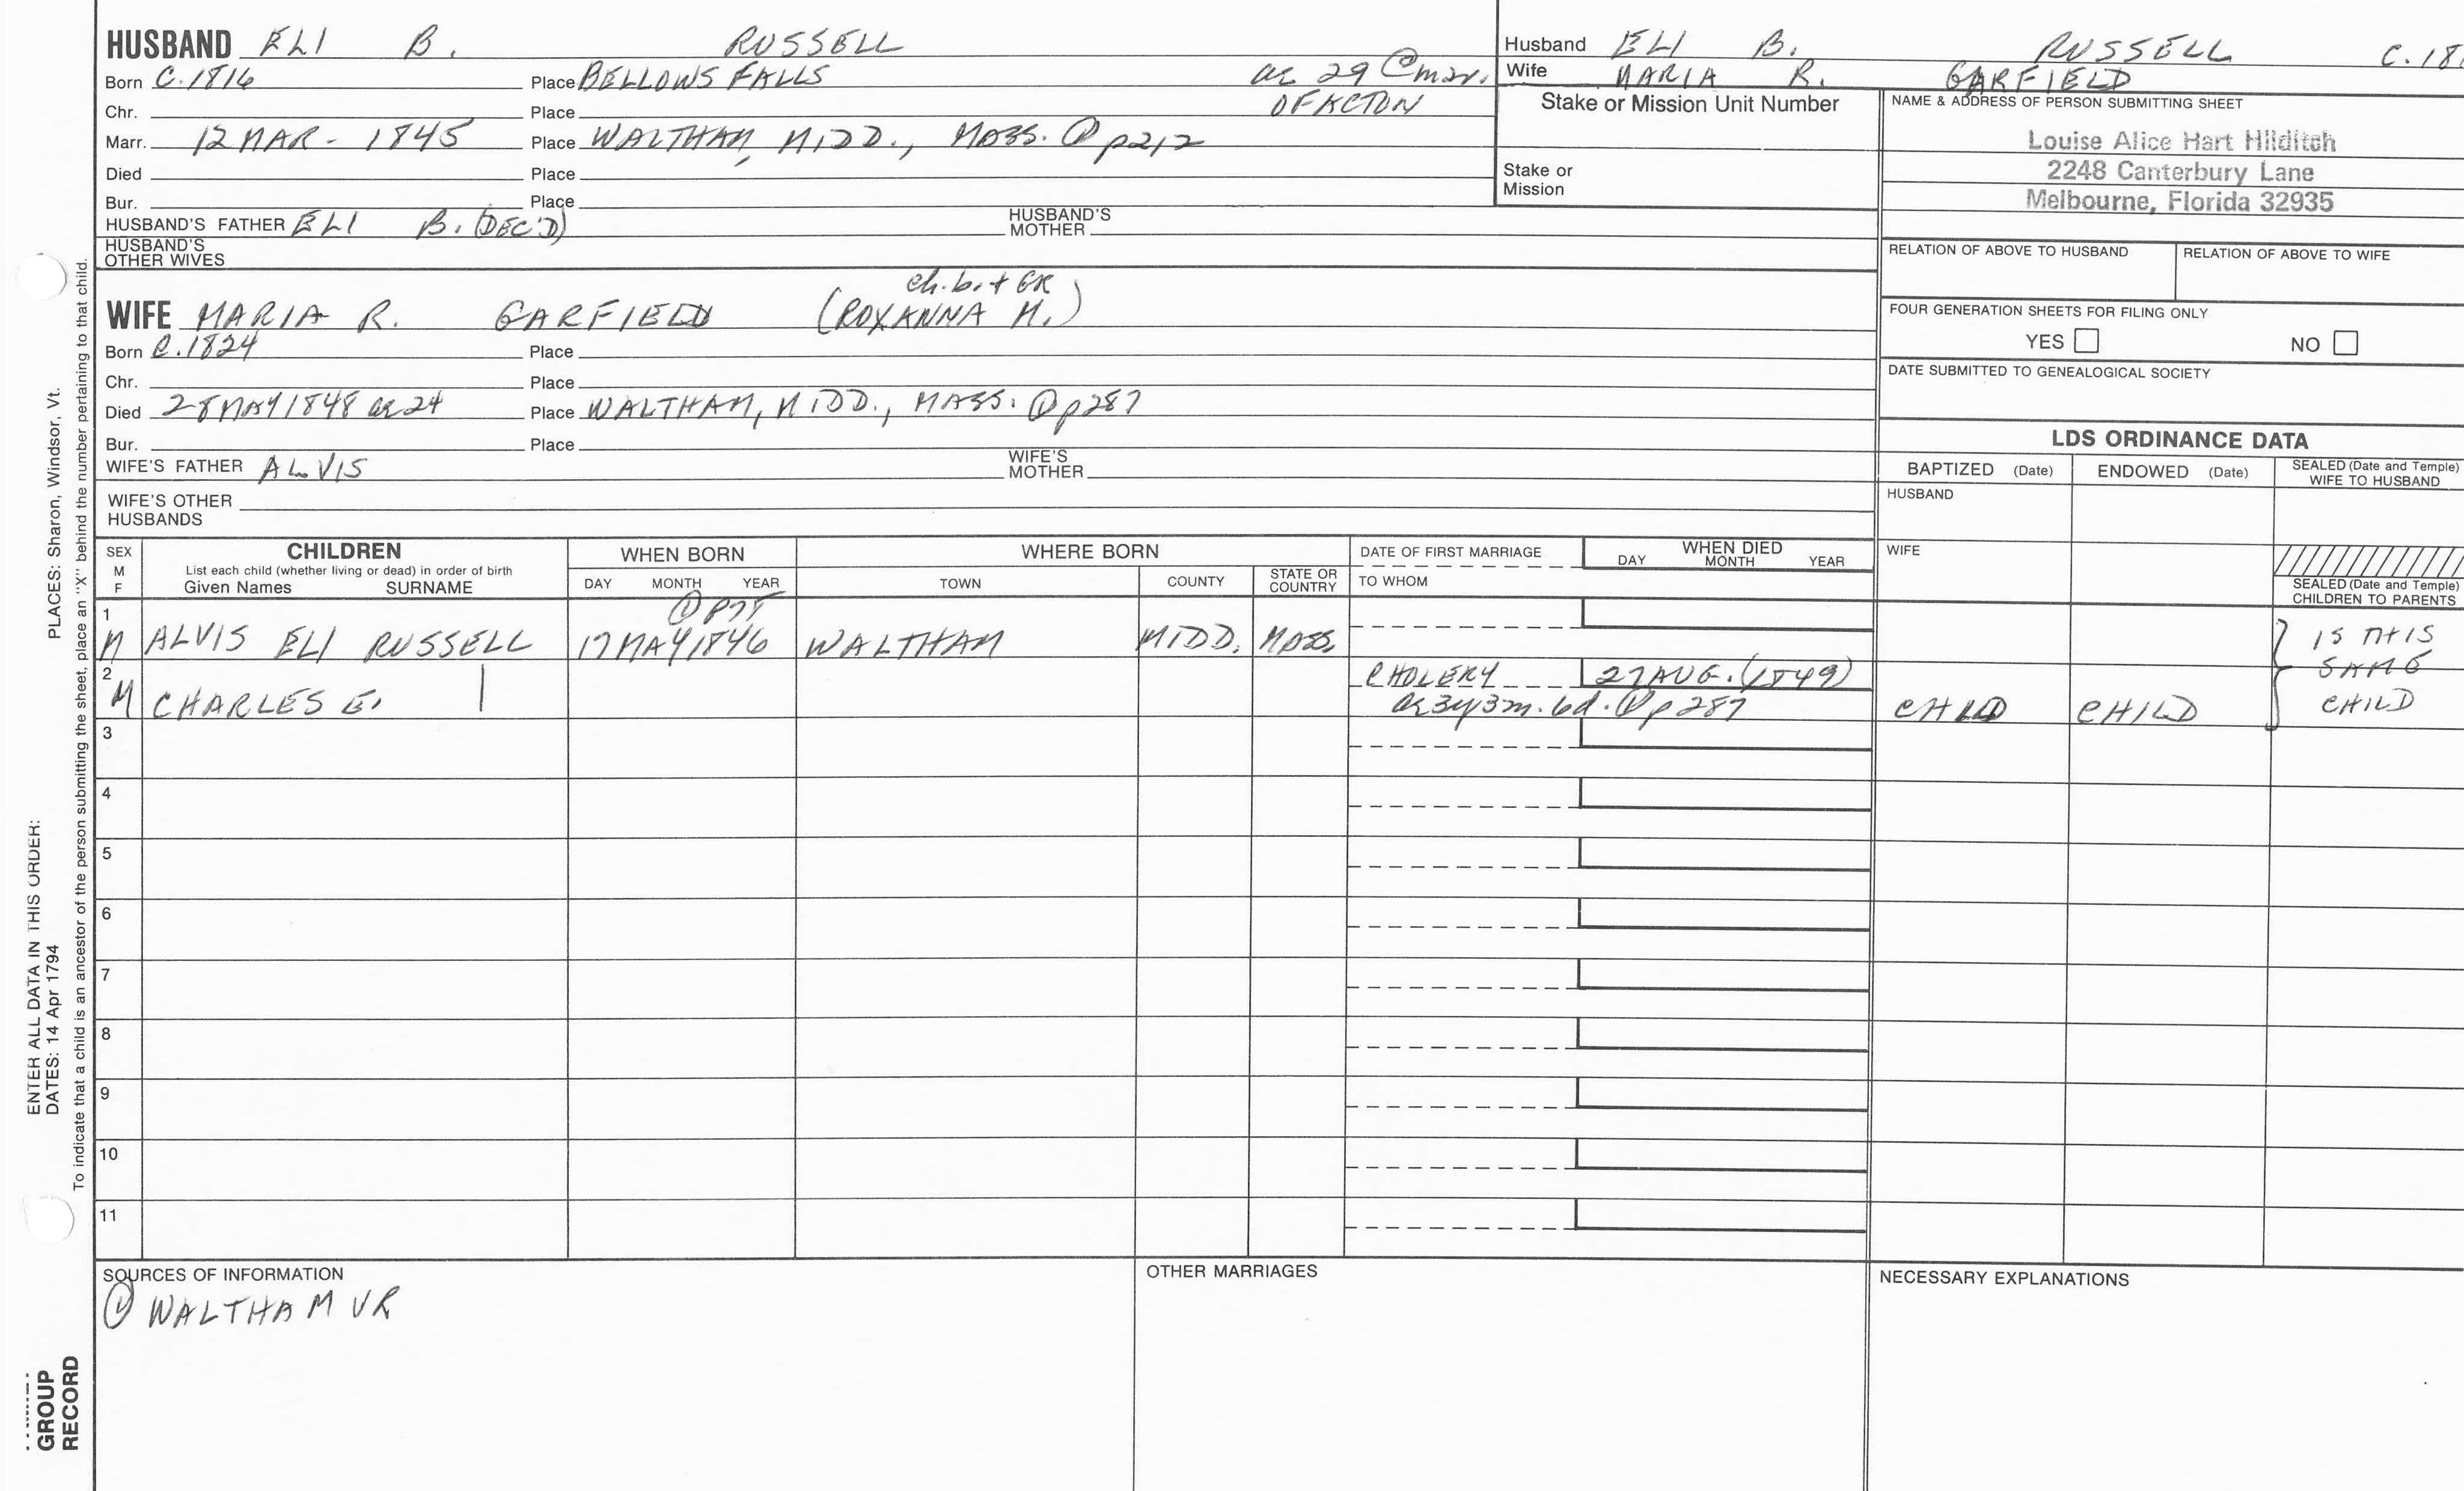 HUSBAND ELI B. RUSSELL
Born C.1816 Place BELLOWS FALLS ae 29 @ mar.
Chr. Place OF ACTON
Marr. 12 MAR - 1845 Place WALTHAM, MIDD., MASS. ① p212
Died Place
Bur. Place
HUSBAND'S FATHER ELI B. (DEC'D) HUSBAND'S MOTHER
HUSBAND'S OTHER WIVES
ch. b. + GR
WIFE MARIA R. GARFIELD (ROXANNA M.)
Born C.1824 Place
Chr. Place
Died 28 MAY 1848 ae 24 Place WALTHAM, MIDD., MASS. ① p287
Bur. Place
WIFE'S FATHER ALVIS WIFE'S MOTHER
WIFE'S OTHER HUSBANDS
Husband ELI B. RUSSELL C.18
Wife MARIA R. GARFIELD
Stake or Mission Unit Number
Stake or
Mission
NAME & ADDRESS OF PERSON SUBMITTING SHEET
Louise Alice Hart Hilditch
2248 Canterbury Lane
Melbourne, Florida 32935
RELATION OF ABOVE TO HUSBAND RELATION OF ABOVE TO WIFE
FOUR GENERATION SHEETS FOR FILING ONLY
YES NO
DATE SUBMITTED TO GENEALOGICAL SOCIETY
LDS ORDINANCE DATA
BAPTIZED (Date) ENDOWED (Date) SEALED (Date and Temple) WIFE TO HUSBAND
HUSBAND
WIFE
SEALED (Date and Temple)
CHILDREN TO PARENTS
SEX M F CHILDREN WHEN BORN WHERE BORN DATE OF FIRST MARRIAGE WHEN DIED
List each child (whether living or dead) in order of birth
Given Names SURNAME DAY MONTH YEAR TOWN COUNTY STATE OR COUNTRY TO WHOM DAY MONTH YEAR
1 ① P75
M ALVIS ELI RUSSELL 17 MAY 1846 WALTHAM MIDD. MASS. } IS THIS
2 CHOLERY 27 AUG. (1849) SAME
M CHARLES E. | ae 3y 3m. 6d. ① p287 CHILD CHILD CHILD
3
4
5
6
7
8
9
10
11
SOURCES OF INFORMATION OTHER MARRIAGES NECESSARY EXPLANATIONS
① WALTHAM VR
ENTER ALL DATA IN THIS ORDER:
DATES: 14 Apr 1794 PLACES: Sharon, Windsor, Vt.
To indicate that a child is an ancestor of the person submitting the sheet, place an "X" behind the number pertaining to that child.
GROUP
RECORD